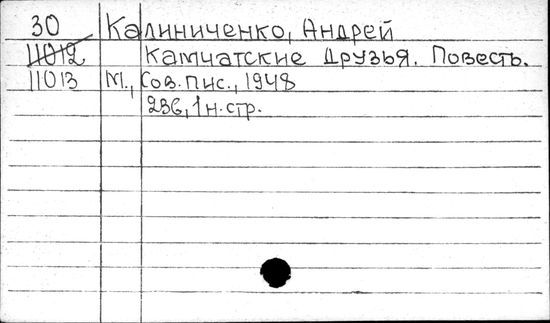 30 Калиниченко, Андрей
11012 Камчатские друзья. Повесть.
11013 М., Сов. пис., 1948
236, 1 н. стр.